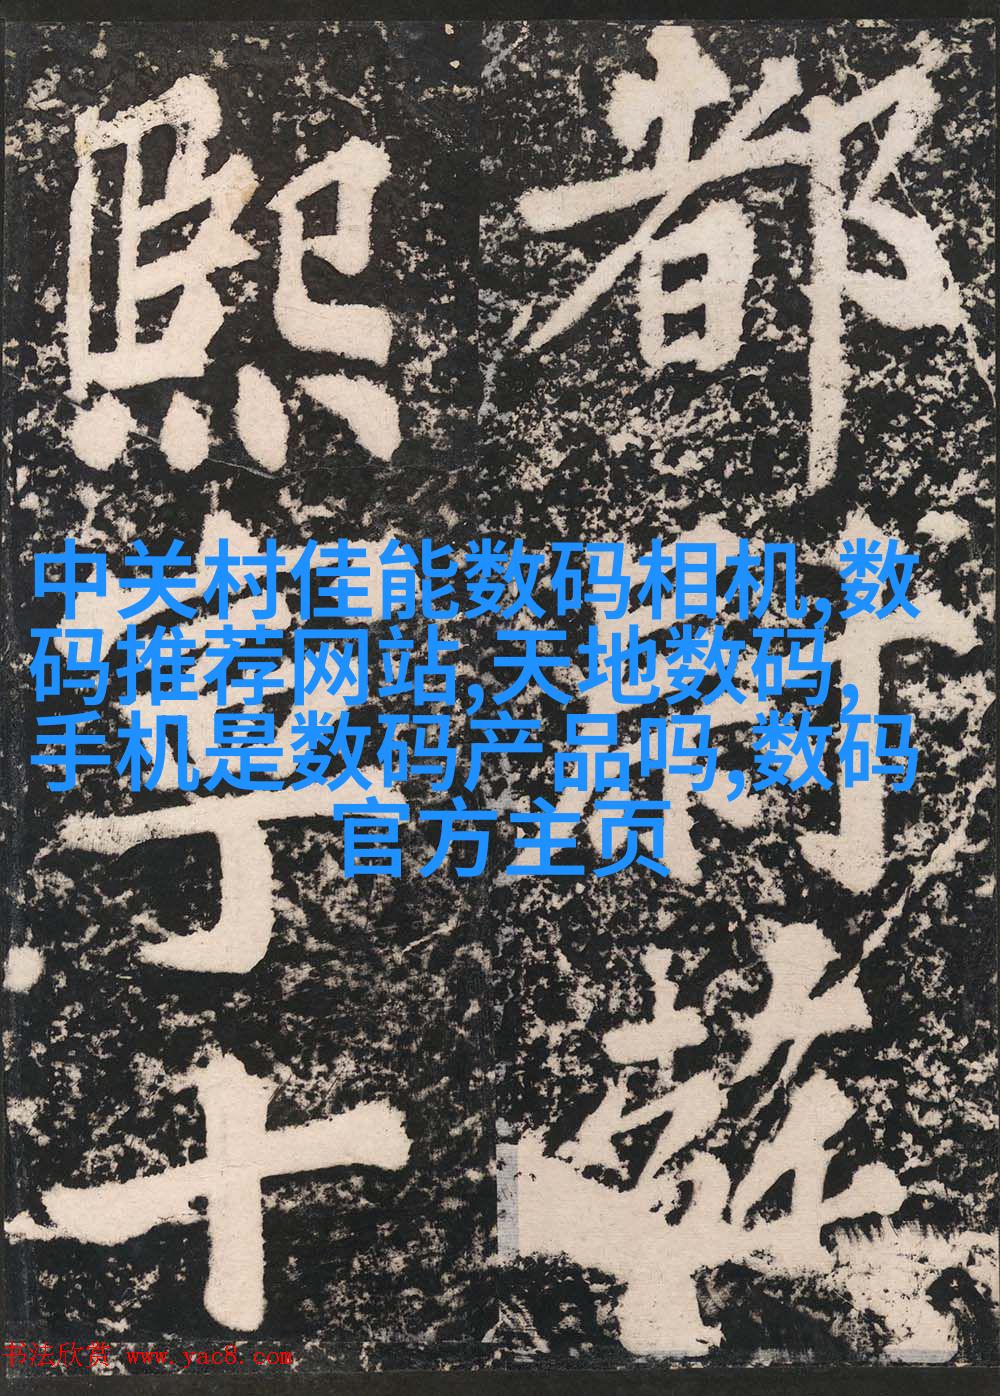 都
熙
中关村佳能数码相机,数
码推荐网站,天地数码,
手机是数码产品吗,数码
官方主页
十
书法欣赏 www.yac8.com